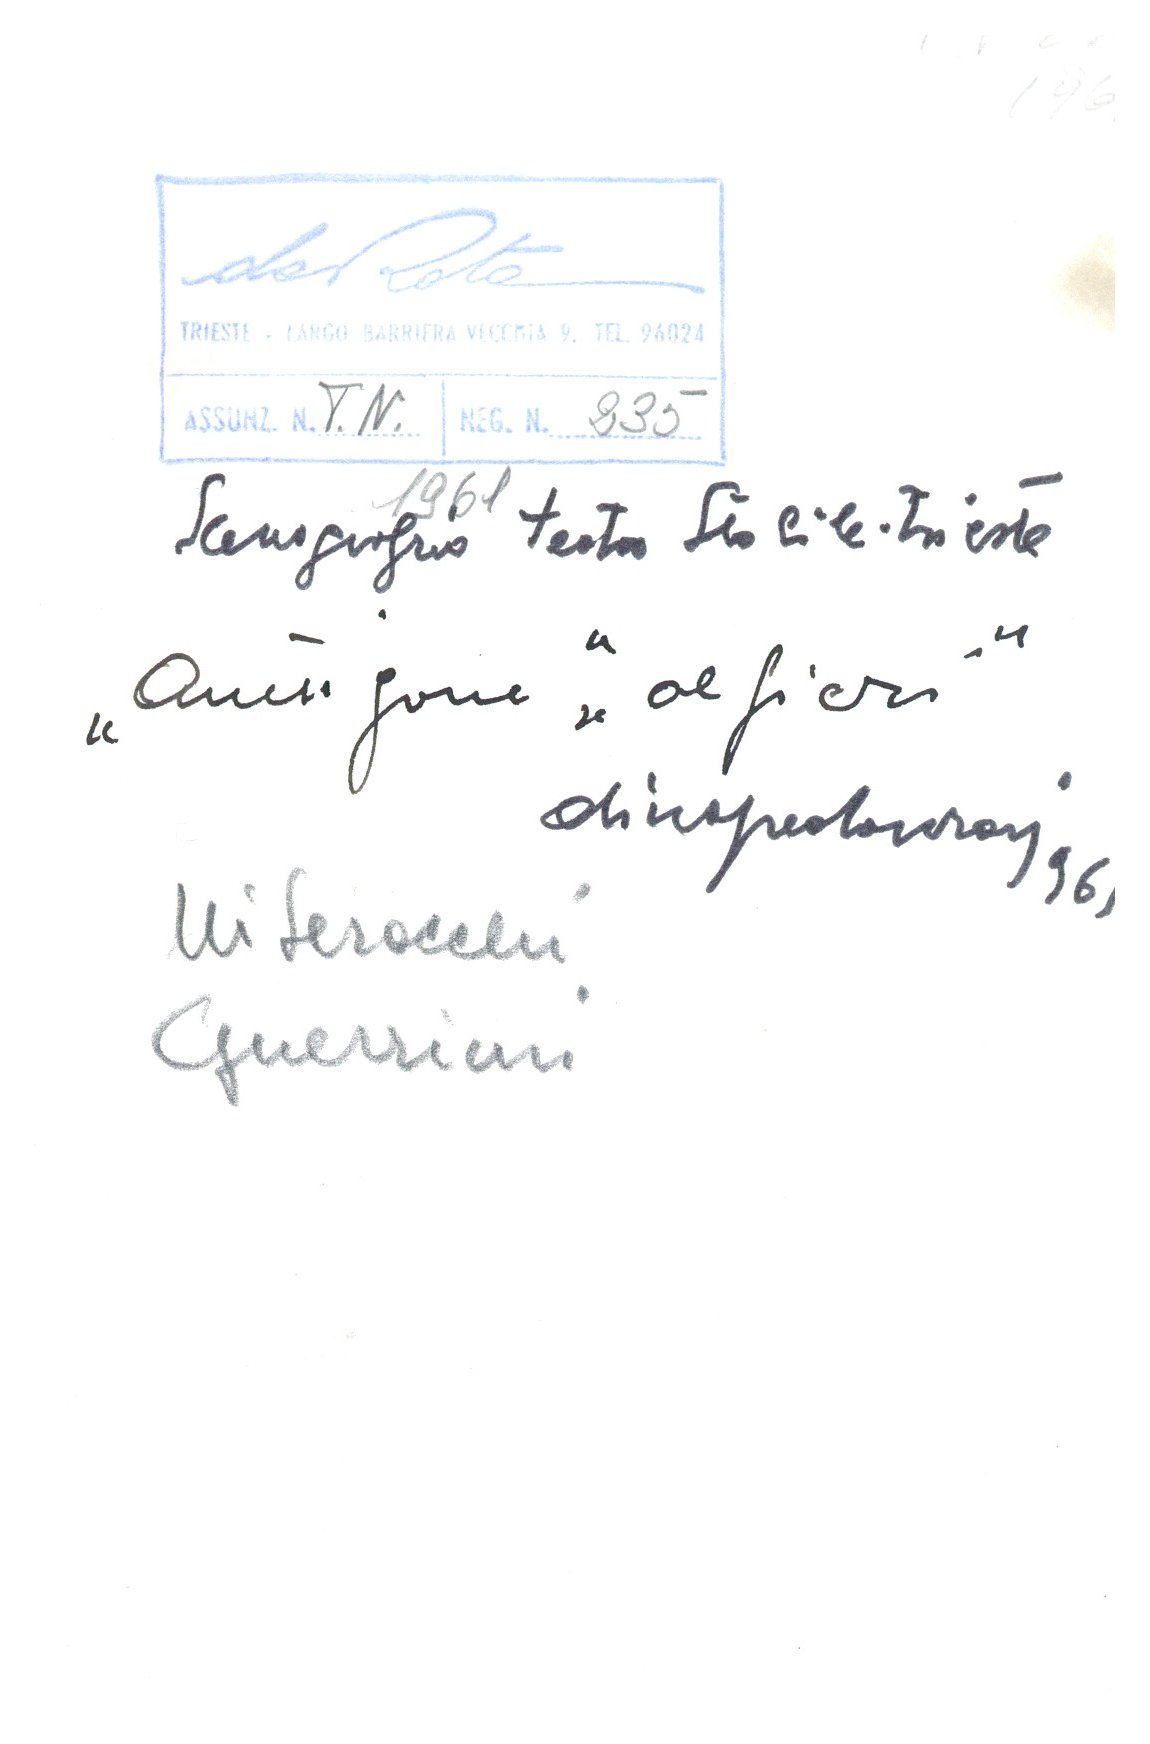 196
de Rota
TRIESTE - LARGO BARRIERA VECCHIA 9. TEL. 96024
ASSUNZ. N. T.N. NEG. N. 235
1961
Scenografia teatro Stabile. Trieste
"Antigone" "alfieri"
dinopredonzani 961
Miserocchi
Guerrieri